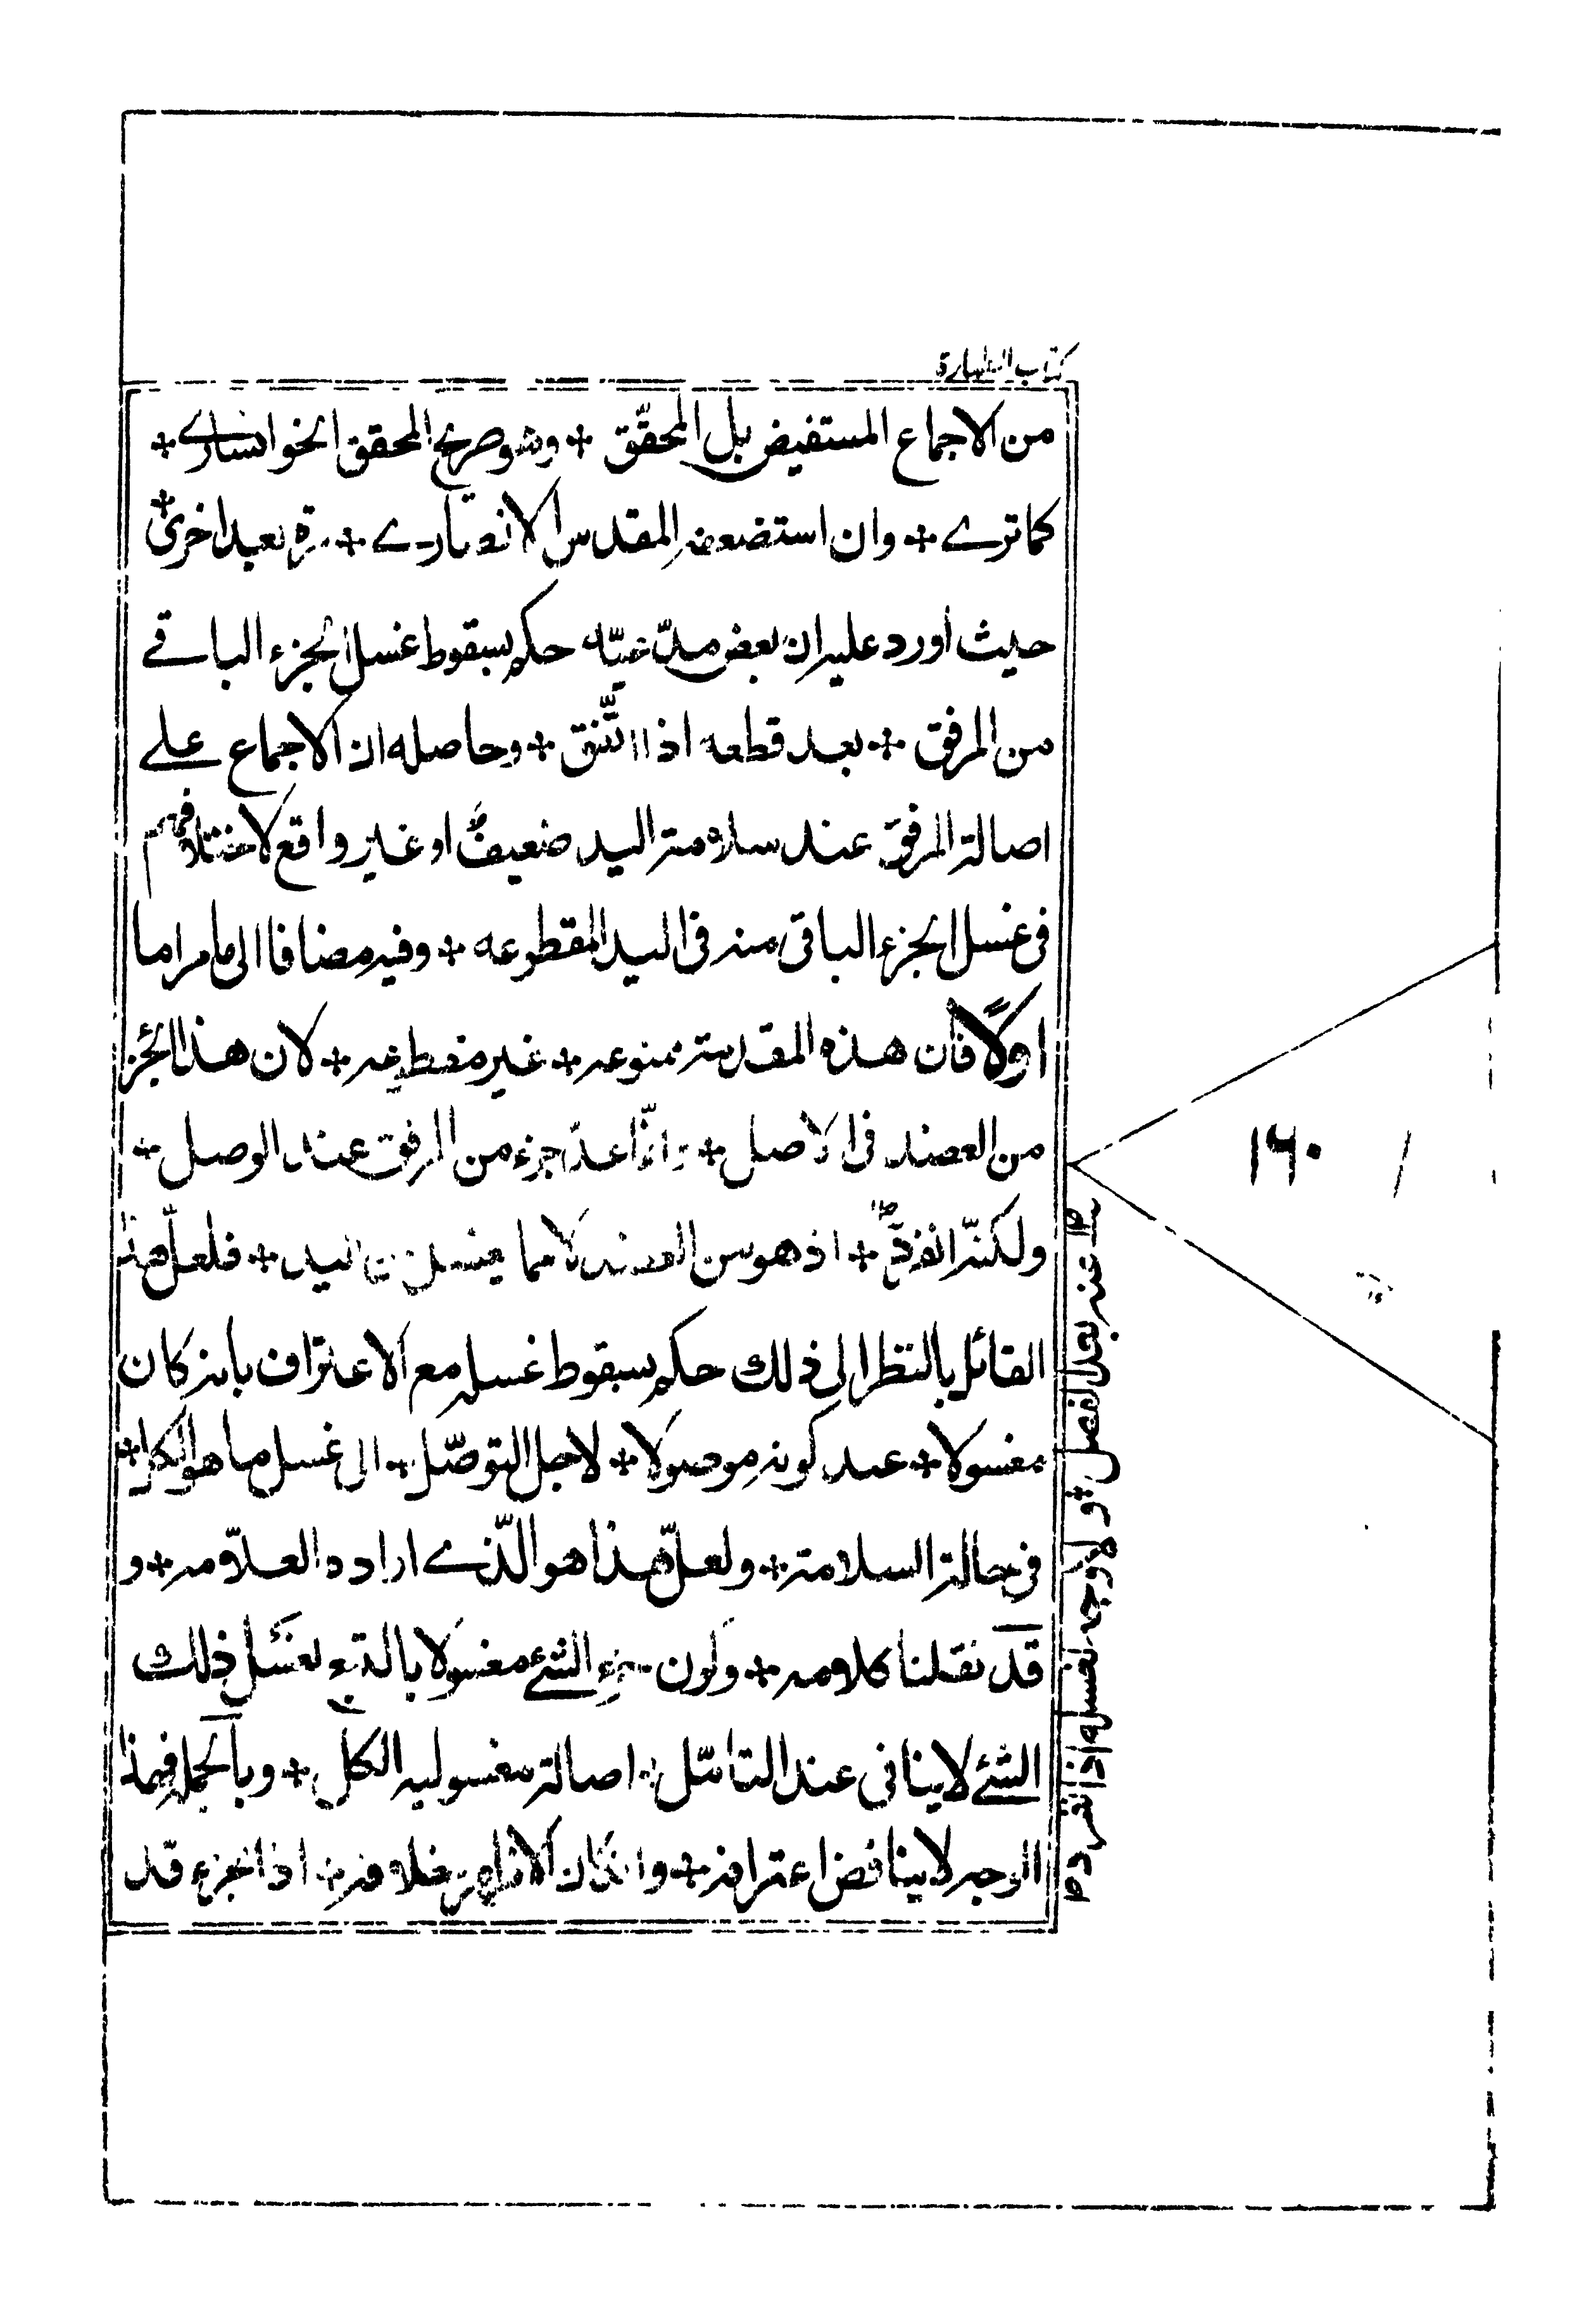 كتاب الطهارة
من الاجماع المستفيض بل المحقّق + وهو صريح المحقق الخوانسارے +
كما ترے + وان استضعفه المقدس الانصارے + مرة بعد اخرىٰ +
حيث اورد عليه ان بعض مدّعيّه حكم بسقوط غسل الجزء الباقے
من المرفق + بعد قطعه اذا اتّفق + وحاصله ان الاجماع علے
اصالة المرفق عند سلامة اليد ضعيفٌ او غير واقع لاختلافهم
فى غسل الجزء الباقى منه فى اليد المقطوعه + وفيه مضافا الى ما مر اما
اولًا فان هذه المقدمة ممنوعه + غير مقطوعه + لان هذا الجزء
من العضد فى الاصل + وانّما عدّ جزء من المرفق عند الوصل +
ولكنّه انفردؔ + اذ هو من العضد لا مما يغسل من اليد + فلعلّ هذا
القائل بالنظر الى ذلك حكم بسقوط غسله مع الاعتراف بانه كان
مغسولا + عند كونه موصولا + لاجل التوصّل + الى غسل ما هو الكل +
فى حالة السلامة + ولعلّ هذا هو الّذے اراده العلّامه + و
قد نقلنا كلامه + وكون جزء الشئ مغسولا بالتبع لغسل ذلك
الشئ لا ينافى عند التامّل + اصالة مغسوليه الكل + وبالجمله فهذا
الوجه لا يناقض اعترافه + وان كان الاظهر خلافه + اذ الجزء قد
عنه بعد الفصل + ولا وجه لغسله اذا انفرد
۱۶۰